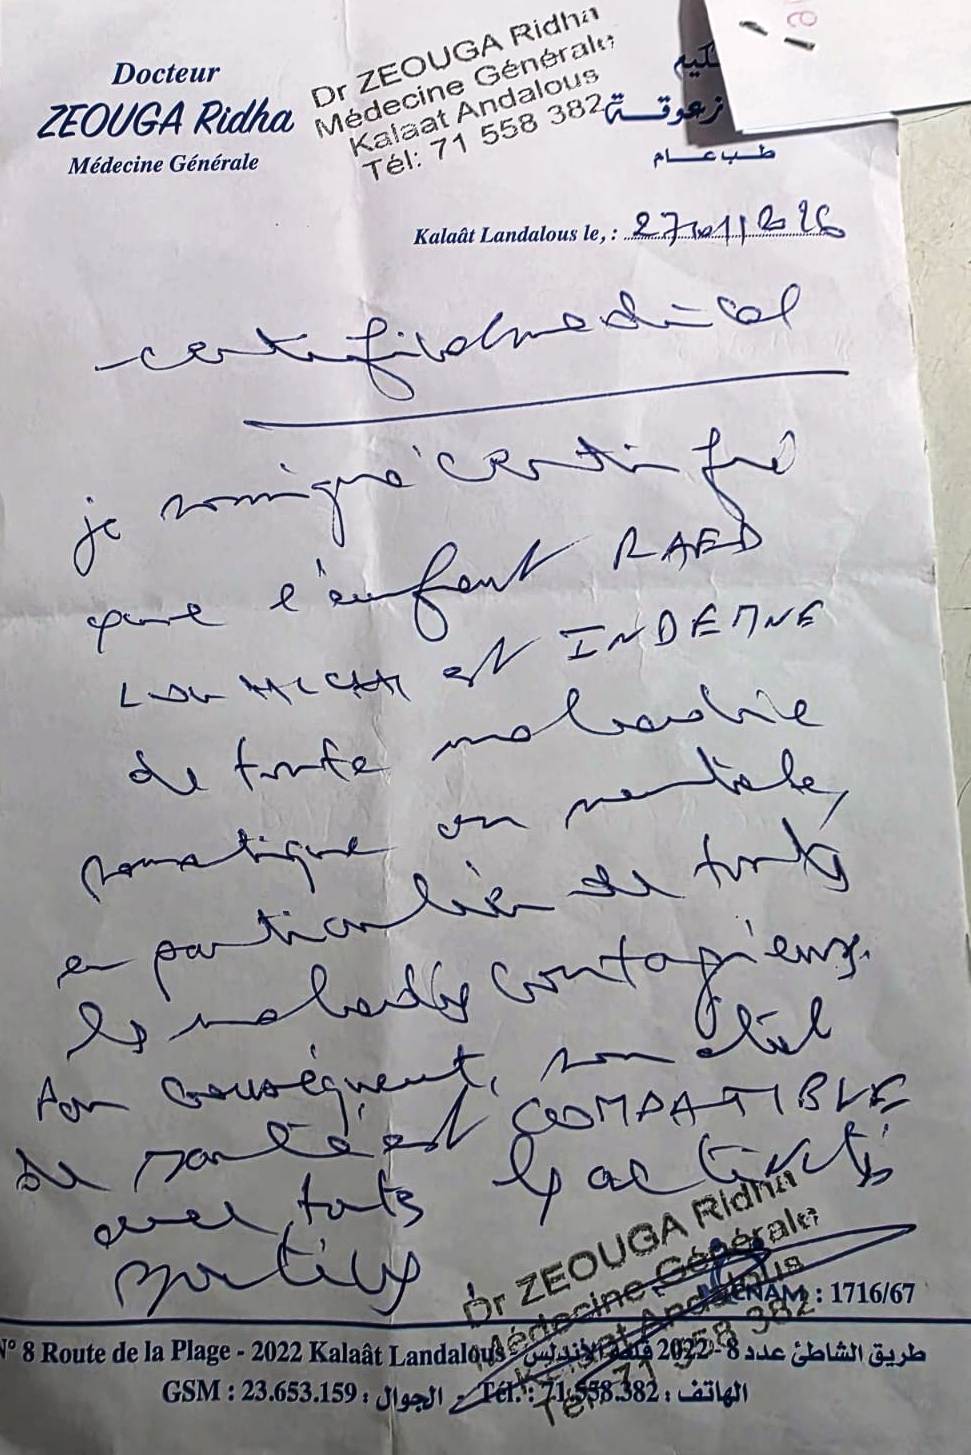 Docteur
ZEOUGA Ridha
Médecine Générale
Dr ZEOUGA Ridha
Médecine Générale
Kalaat Andalous
Tél: 71 558 382
زعوقة
طب عام
Kalaât Landalous le, : 27/01/2026
certificat medical
je soussigné certifié
que l'enfant RAED
est INDEMNE
de toute maladie
somatique ou mentale,
en particulier de toutes
les maladies contagieuses.
Par conséquent, son état
de santé est COMPATIBLE
avec toutes les activités
sportives
Dr ZEOUGA Ridha
Médecine Générale
Kalaat Andalous
Tél: 71 558 382
CNAM : 1716/67
N° 8 Route de la Plage - 2022 Kalaât Landalous - طريق الشاطئ عدد 8 - 2022 قلعة الأندلس
GSM : 23.653.159 : الجوال - Tél. : 71.558.382 : الهاتف